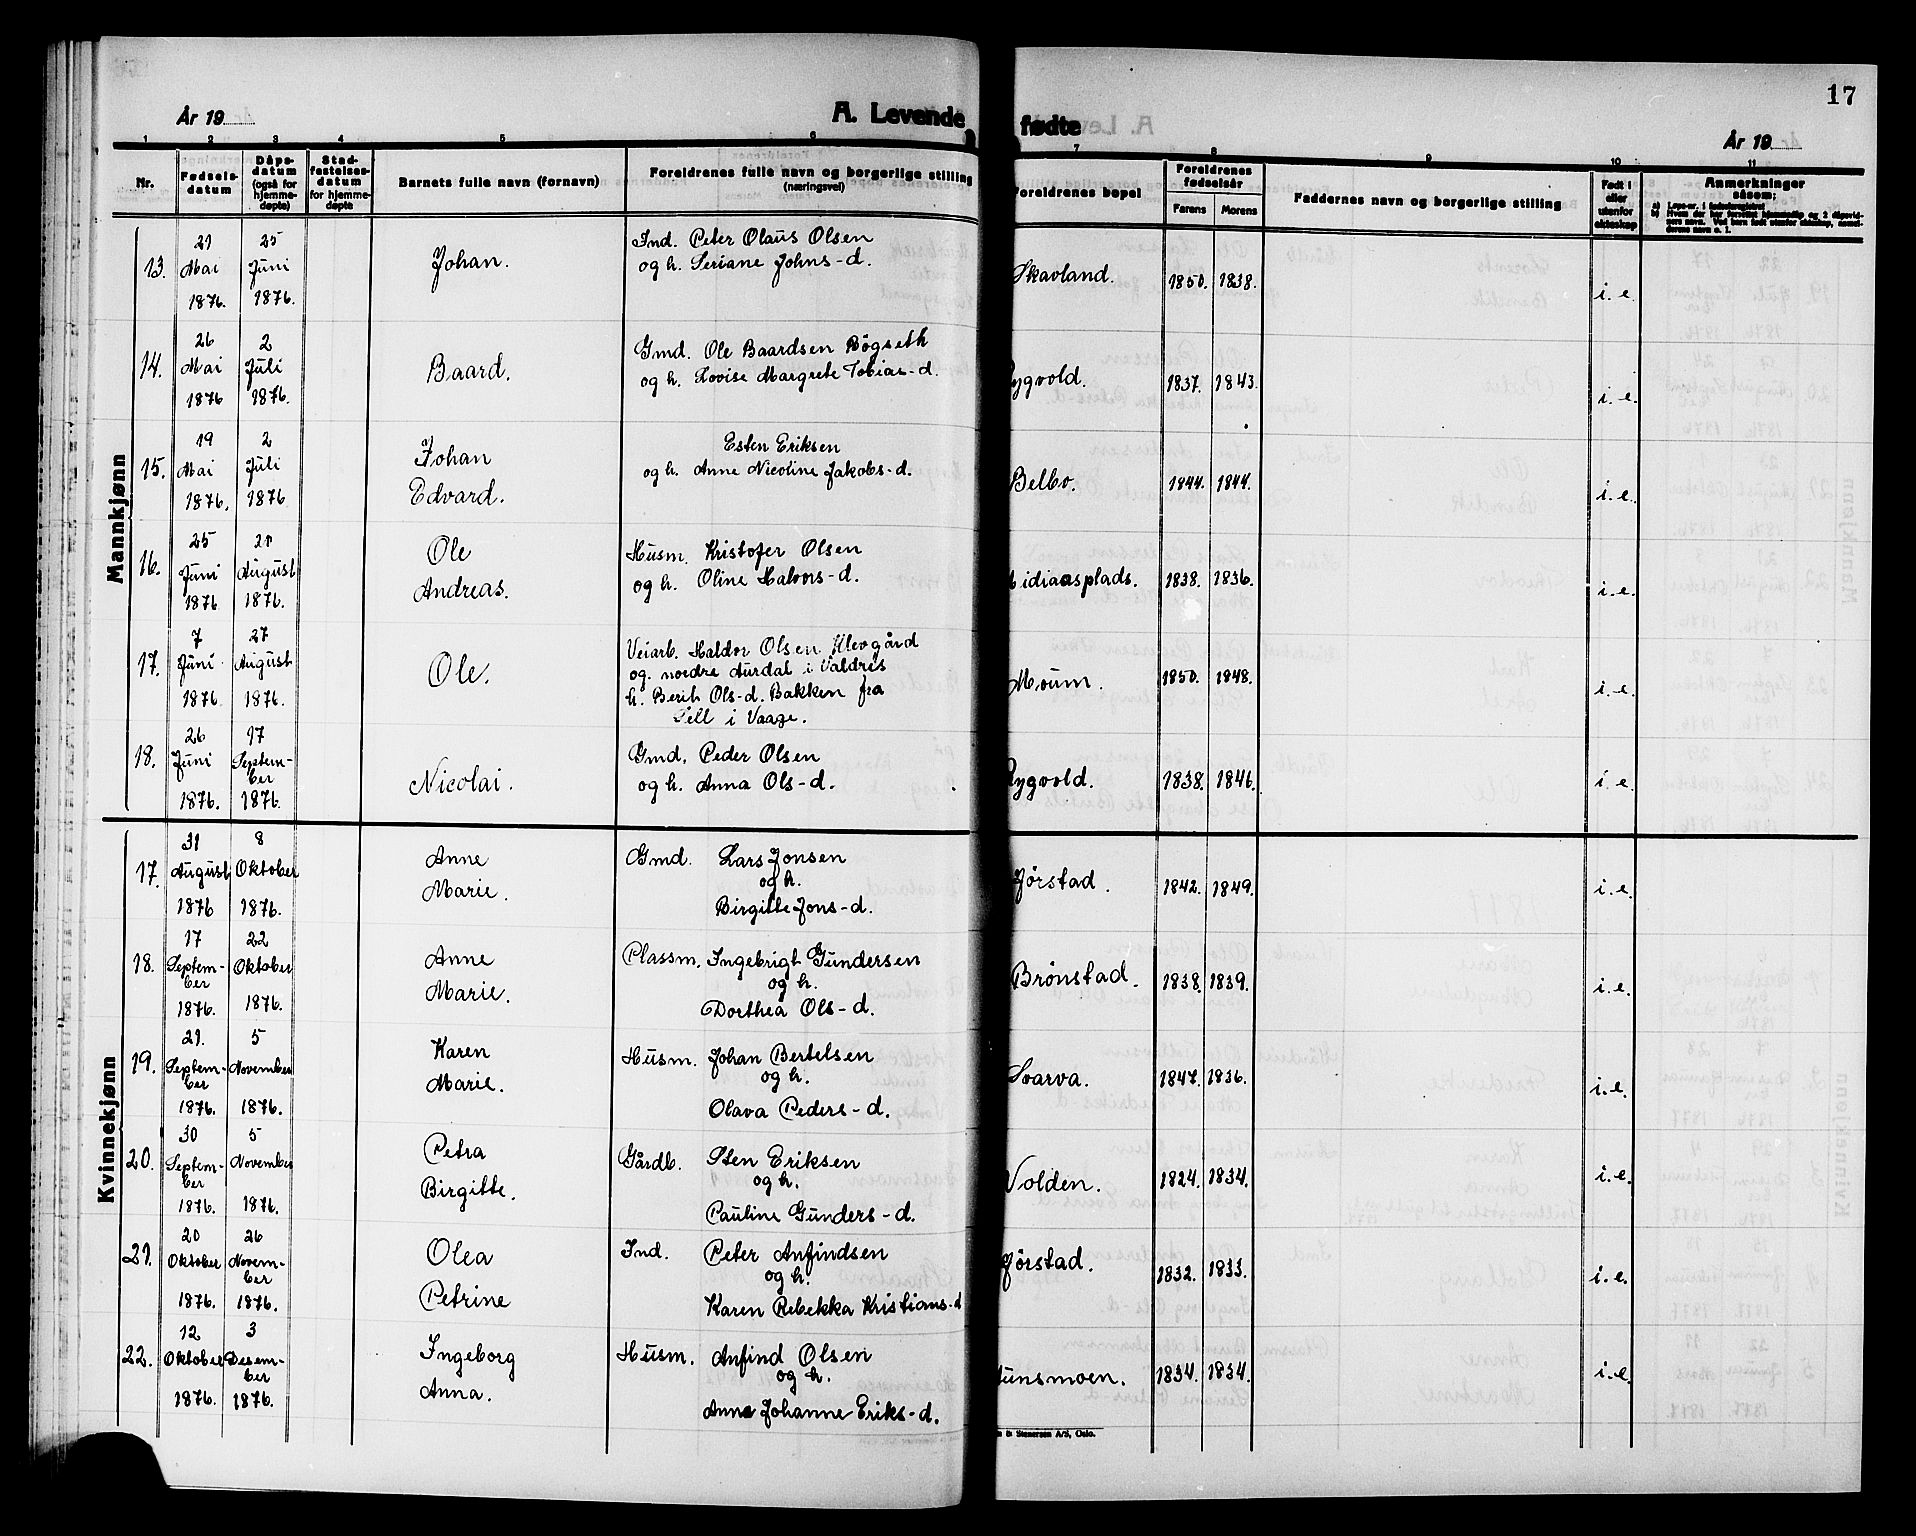 17
År 19
A. Levende fødte
År 19
1 2 3 4 5 6 7 8 9 10 11
Nr.
Fødsels-
datum
Dåps-
datum
(også for
hjemme-
døpte)
Stad-
festelses-
datum
for hjemme-
døpte
Barnets fulle navn (fornavn)
Foreldrenes fulle navn og borgerlige stilling
(næringsvei)
Foreldrenes bopel
Foreldrenes
fødselsår
Farens Morens
Faddernes navn og borgerlige stilling
Født i
eller
utenfor
ekteskap
Anmerkninger
såsom:
Mannkjønn
21 25 Ind. Peter Olaus Olsen
13. Mai Juni Johan. og h. Seriane Johns-d. Skavland. 1850. 1838. i. e.
1876. 1876.
26 2 Gmd. Ole Baardsen Bøgseth
14. Mai Juli Baard. og h. Lovise Margrete Tobias-d. Rygvold. 1837. 1843. i. e.
1876 1876.
19 2 Johan Esten Eriksen
15. Mai Juli og h. Anne Nicoline Jakobs-d. Belbo. 1844. 1844. i. e.
1876 1876 Edvard.
25 21 Ole Husm. Kristofer Olsen
16. Juni August og h. Oline Halvors-d. idiaasplads. 1838. 1836. i. e.
1876 1876. Andreas.
7 27 Veiarb. Haldor Olsen Ulevgård
17. Juni August Ole. og. nordre Aurdal i Valdres Moum. 1850. 1848. i. e.
1876 1876. h. Berit Ols-d. Bakken fra
Sell i Vaage.
26 17 Gmd. Peder Olsen
18. Juni Septem-
ber Nicolai. og h. Anna Ols-d. Rygvold. 1838. 1846. i. e.
1876. 1876.
Kvinnekjønn
31 8 Anne Gmd. Lars Jonsen
17. August Oktober Marie. og h. Jørstad. 1842. 1849. i. e.
1876 1876. Birgitte Jons-d.
17 22 Anne Plassm. Ingebrigt Gundersen
18. Septem-
ber Oktober Marie. og h. Brønstad. 1838. 1839. i. e.
1876. 1876. Dorthea Ols-d.
21. 5 Karen Husm. Johan Bertelsen
19. Septem-
ber November Marie. og h. Svarva. 1847. 1836. i. e.
1876. 1876. Olava Peders-d.
30 5 Petra Gårdb. Sten Eriksen
20. Septem-
ber November Birgitte. og h. Volden. 1824. 1834. i. e.
1876. 1876. Pauline Gunders-d.
20 26 Olea Ind. Peter Anfindsen
21. Oktober Novem-
ber og h. Jørstad. 1832. 1833. i. e.
1876. 1876. Petrine Karen Rebekka Kristians-d
12 3 Ingeborg Husm. Anfind Olsen
22. Oktober Desem-
ber og h. unsmoen. 1834. 1834. i. e.
1876. 1876. Anna. Anne Johanne Eriks-d.
& Stenersen A/S, Oslo.